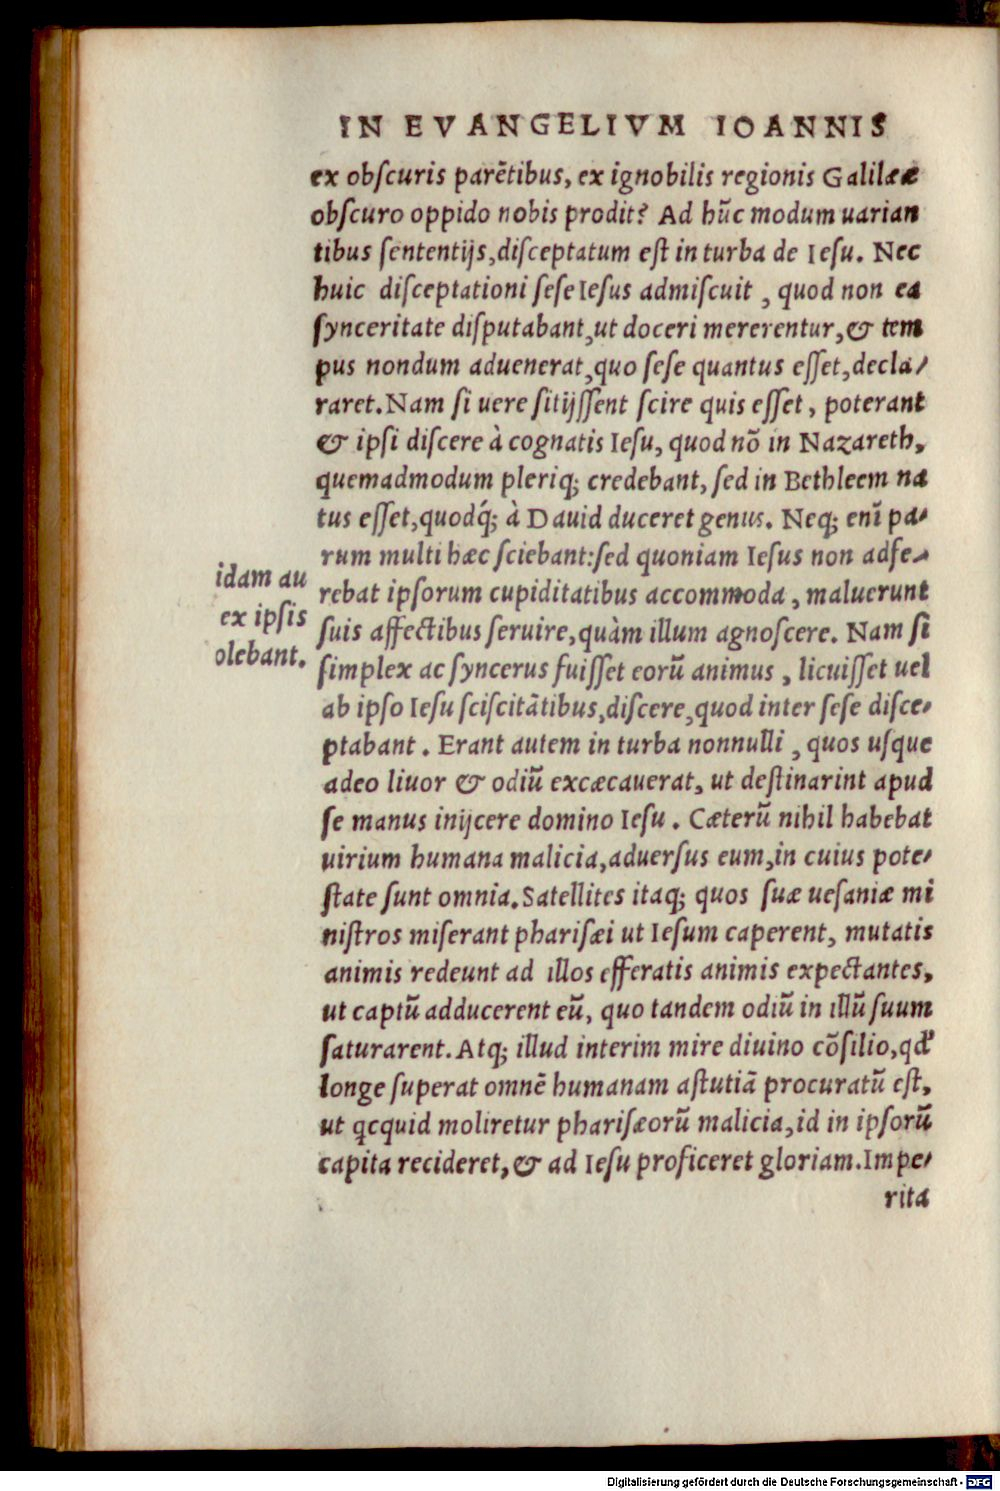 IN EVANGELIVM IOANNIS
ex obſcuris parẽtibus, ex ignobilis regionis Galilææ
obſcuro oppido nobis prodit? Ad hũc modum uarian
tibus ſententijs, diſceptatum eſt in turba de Ieſu. Nec
huic diſceptationi ſeſe Ieſus admiſcuit, quod non ea
ſynceritate diſputabant, ut doceri mererentur, & tem
pus nondum aduenerat, quo ſeſe quantus eſſet, decla/
raret. Nam ſi uere ſitijſſent ſcire quis eſſet, poterant
& ipſi diſcere à cognatis Ieſu, quod nõ in Nazareth,
quemadmodum pleriq; credebant, ſed in Bethleem na
tus eſſet, quodq́; à Dauid duceret genus. Neq; enĩ pa/
rum multi hæc ſciebant: ſed quoniam Ieſus non adfe/
rebat ipſorum cupiditatibus accommoda, maluerunt
ſuis affectibus ſeruire, quàm illum agnoſcere. Nam ſi
ſimplex ac ſyncerus fuiſſet eorũ animus, licuiſſet uel
ab ipſo Ieſu ſciſcitãtibus, diſcere, quod inter ſeſe diſce/
ptabant. Erant autem in turba nonnulli, quos uſque
adeo liuor & odiũ excæcauerat, ut deſtinarint apud
ſe manus inijcere domino Ieſu. Cæterũ nihil habebat
uirium humana malicia, aduerſus eum, in cuius pote/
ſtate ſunt omnia. Satellites itaq; quos ſuæ ueſaniæ mi
niſtros miſerant phariſæi ut Ieſum caperent, mutatis
animis redeunt ad illos efferatis animis expectantes,
ut captũ adducerent eũ, quo tandem odiũ in illũ ſuum
ſaturarent. Atq; illud interim mire diuino cõſilio, qđ
longe ſuperat omnẽ humanam aſtutiã procuratũ eſt,
ut qcquid moliretur phariſæorũ malicia, id in ipſorũ
capita recideret, & ad Ieſu proficeret gloriam. Impe/
rita
idam au
ex ipſis
olebant.
Digitalisierung gefördert durch die Deutsche Forschungsgemeinschaft - DFG